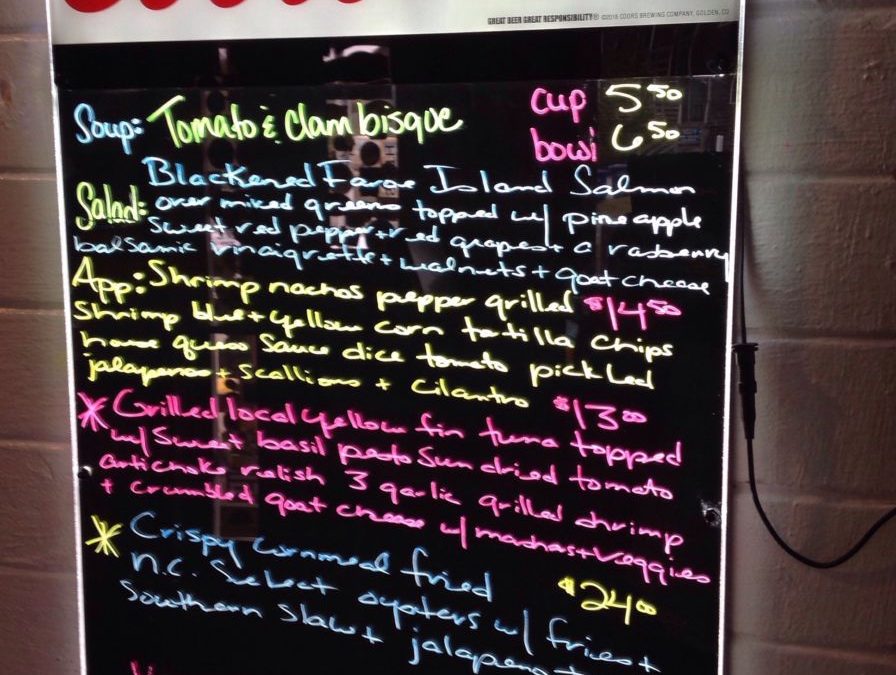 GREAT BEER GREAT RESPONSIBILITY® ©2016 COORS BREWING COMPANY, GOLDEN, CO
Soup: Tomato & clam bisque cup 5 50
bowl 6 50
Blackened Faroe Island Salmon
Salad: over mixed greens topped w/ pineapple
sweet red pepper + red grapes + a rasberry
balsamic vinaigrette + walnuts + goat cheese
App: Shrimp nachos pepper grilled $14 50
Shrimp blue + yellow corn tortilla chips
house queso sauce dice tomato pickled
jalapenos + scallions + cilantro $13 00
* Grilled local yellow fin tuna topped
w/ sweet basil pesto sun dried tomato
artichoke relish 3 garlic grilled shrimp
+ crumbled goat cheese w/ mashas + veggies
* Crispy cornmeal fried $24 00
n.c. Select oysters w/ fries +
Southern Slaw + jalapeno +